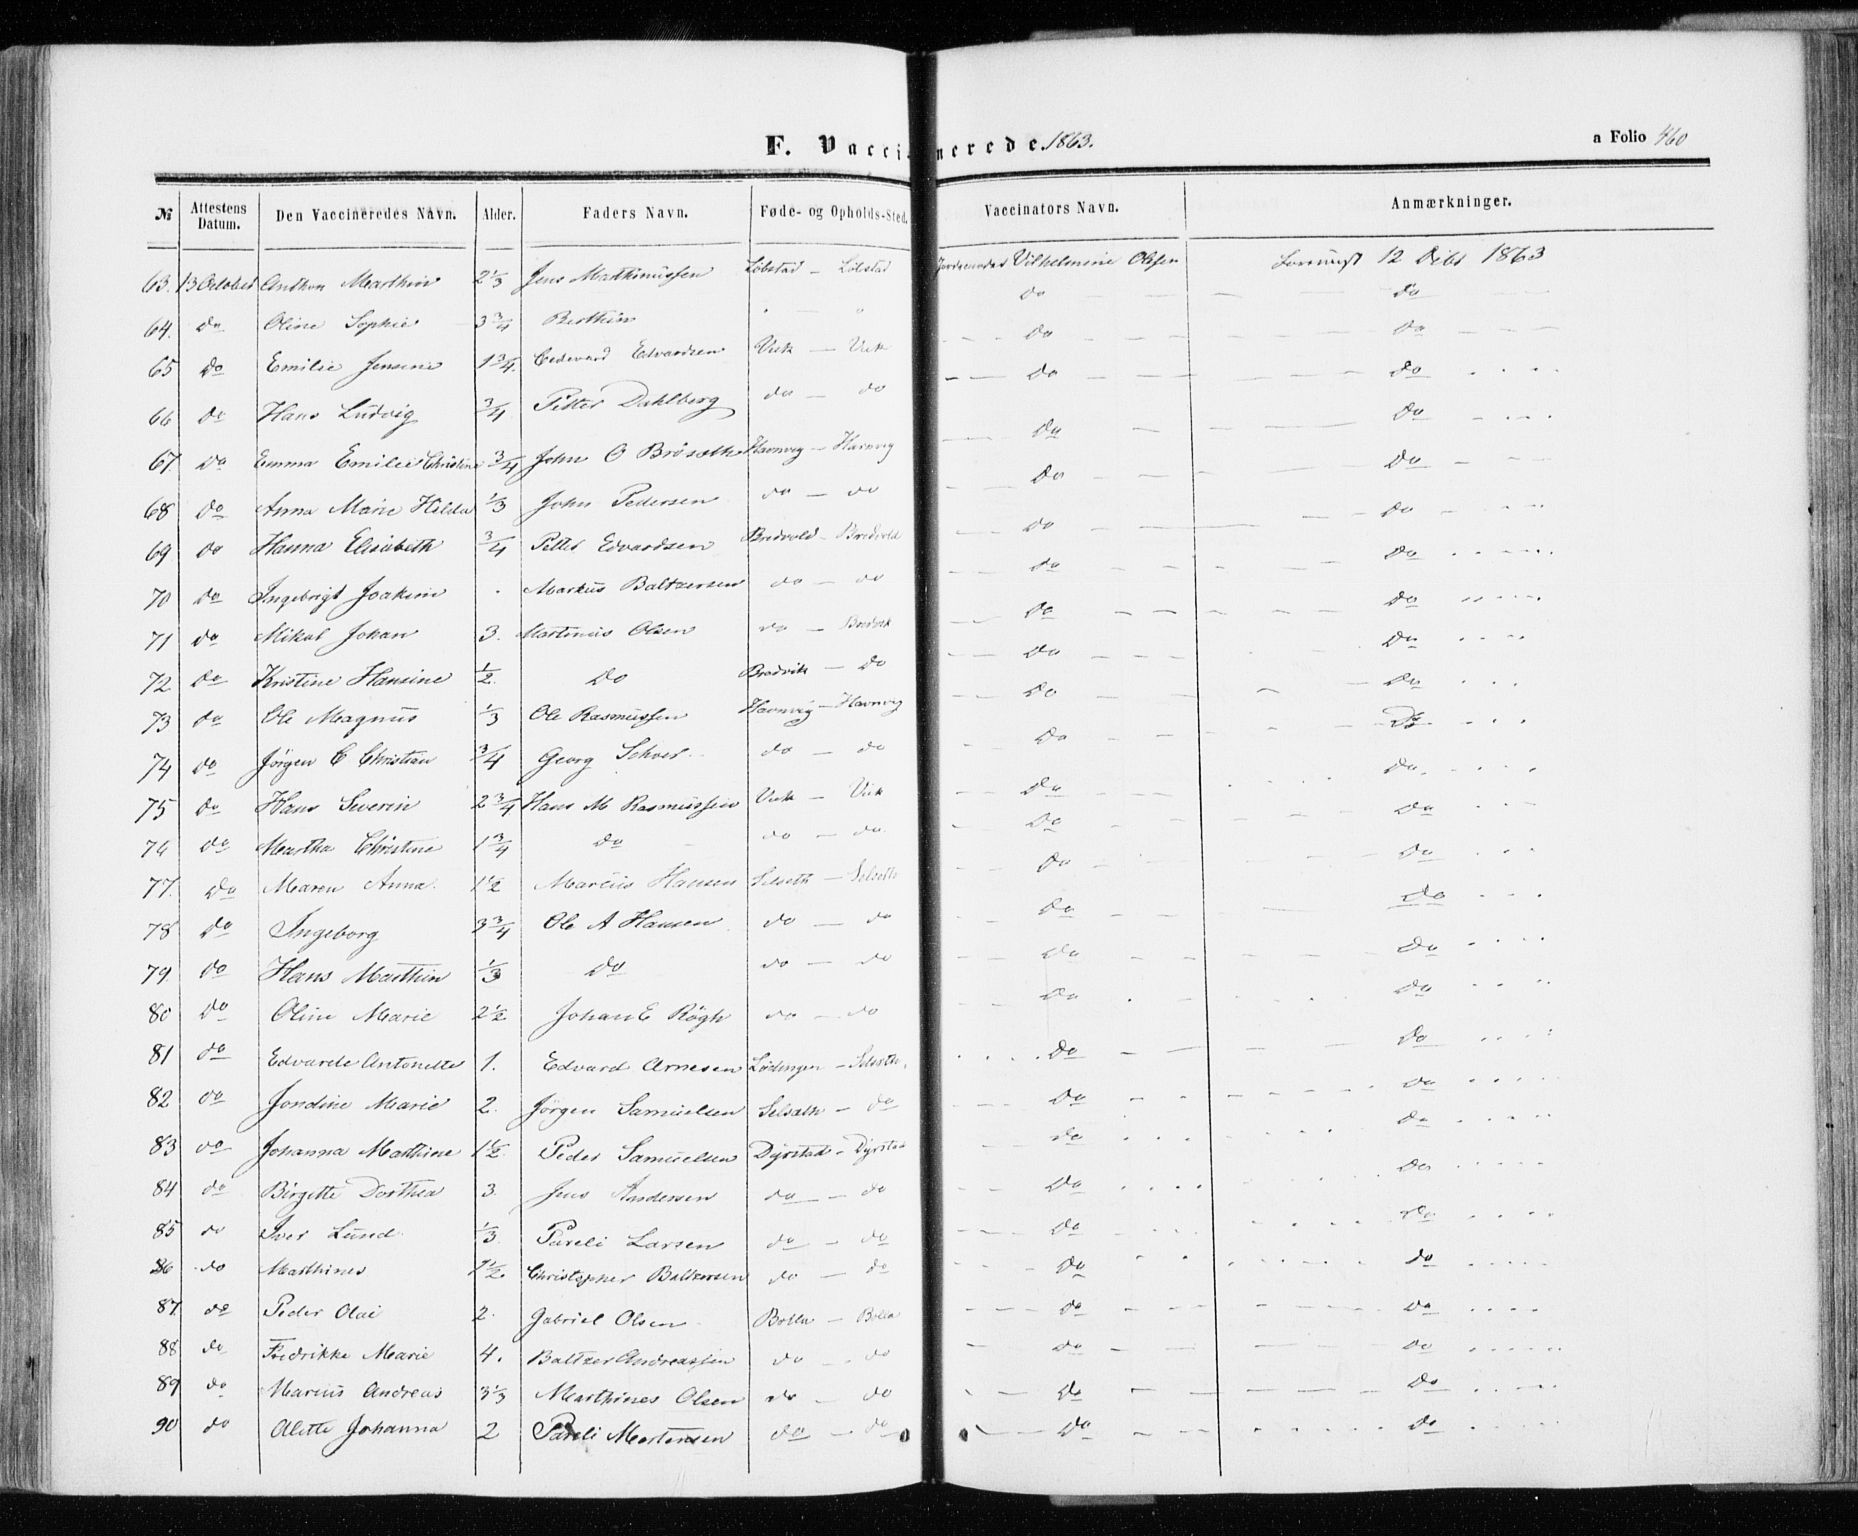 F. Vaccinerede 1863.
a Folio 460
№ Attestens Datum. Den Vaccineredes Navn. Alder. Faders Navn. Føde- og Opholds-Sted. Vaccinators Navn. Anmærkninger.
63. 13 October Anthon Marthin 2 1/3 Jens Mathinussen Løbstad - Løbstad Vilhelmine Olsen 12 Dcbr 1863
64. do Oline Sophie 3 3/4 Berthin " " do do
65 do Emilie Jensine 1 3/4. Edvardsen Vik - Vik do do
66 do Hans Ludvig 3/4 Petter Dahlberg do - do do do
67 do Emma Emilie Christine 3/4 John O Brøseth Havnvig - Havnvig do do
68 do Anna Marie Hilda 1/3 John Pedersen do - do do do
69 do Hanna Elisabeth 3/4 Petter Edvardsen Bredvold - Bredvold do do
70 do Ingebrigt Joakim . Markus Baltzersen do - do do do
71 do Mikal Johan 3. Martinus Olsen do - Bredvik do do
72 do Kristine Hansine 1/2 do Bredvik - do do do
73 do Ole Magnus 1/3 Ole Rasmussen Havnvig - Havnvig do do
74 do Jørgen C Christian 3/4 Georg Schoer do - do do do
75 do Hans Severin 2 3/4 Hans M Rasmussen Vik - Vik do do
76 do Martha Christine 1 3/4 do do - do do do
77. do Maren Anna. 1 1/2 Marcus Hansen Selseth - Selseth do do
78 do Ingeborg 3 3/4 Ole A Hansen do - do do do
79. do Hans Marthin 1/3 do do - do do do
80 do Oline Marie 2 1/2 Johan E Røgh do - do do do
81 do Edvarde Antonette 1. Edvard Arnesen Lødingen - Selseth. do do
82 do Jondine Marie 2. Jørgen Samuelsen Selseth - do do do
83 do Johanna Marthine 1 1/2. Peder Samuelsen Dyrstad - Dyrstad do do
84 do Birgitte Dorthea 3. Jens Andersen do - do do do
85 do Iver Lund 1/3 Pareli Larsen do - do do do
86 do Marthines 1 1/2. Christopher Baltzersen do - do do do
87. do Peder Olai 2. Gabriel Olsen Bolla - Bolla do do
88 do Fredrikke Marie 4. Baltzer Andreassen do - do do do
89 do Marius Andreas 3 1/3 Marthines Olsen do - do do do
90 do Olette Johanna 2 Pareli Mortensen do - do do do